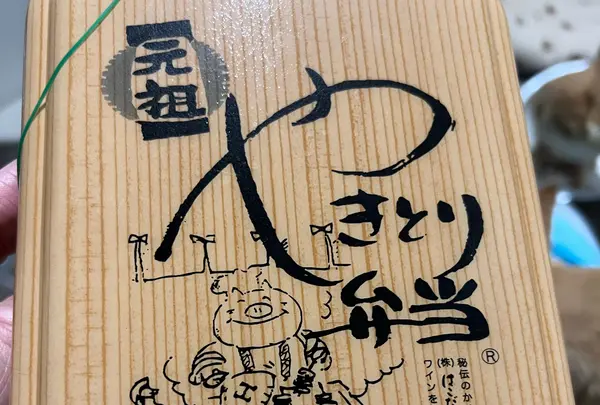 元祖
やきとり
弁当
®
秘伝のか
(株)はこだ
ワインを